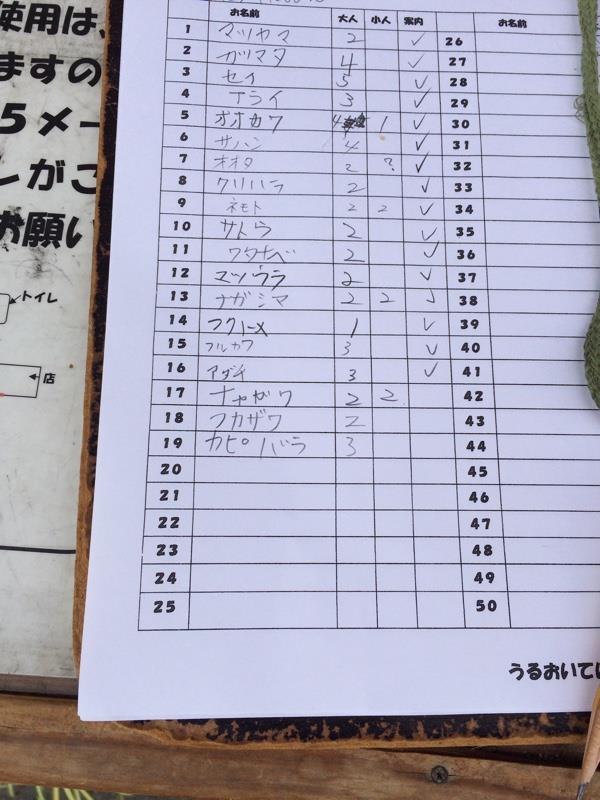 使用は、
ますの
5メー
しがこ
お願い
トイレ
店
お名前 大人 小人 案内 お名前
1 マツヤマ 2 ✓ 26
2 カツマタ 4 ✓ 27
3 セイ 5 ✓ 28
4 アライ 3 ✓ 29
5 オオカワ 4 1 ✓ 30
6 サハシ 4 ✓ 31
7 オオタ 2 ? ✓ 32
8 クリハラ 2 ✓ 33
9 ネモト 2 2 ✓ 34
10 サトウ 2 ✓ 35
11 ワタナベ 2 ✓ 36
12 マツウラ 2 ✓ 37
13 ナガシマ 2 2 ✓ 38
14 フクトメ 1 ✓ 39
15 フルカワ 3 ✓ 40
16 アダチ 3 ✓ 41
17 2 2 42
18 フカザワ 2 43
19 カピバラ 3 44
20 45
21 46
22 47
23 48
24 49
25 50
うるおいてい